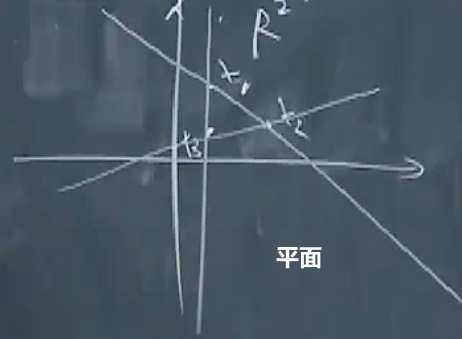 R²
x₁
x₂
x₃
平面